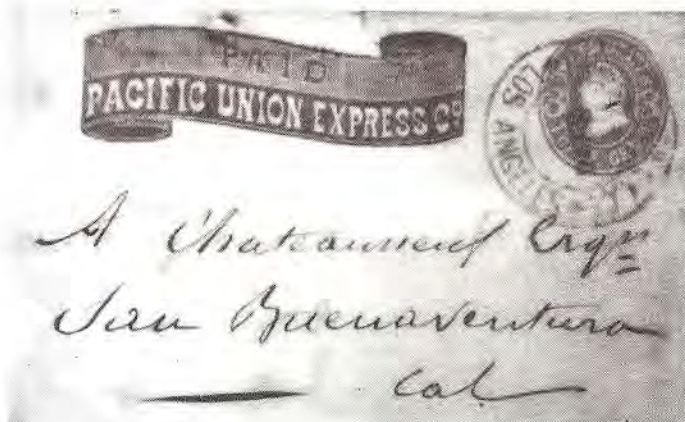 PAID
PACIFIC UNION EXPRESS Co
LOS ANGEL
A Chateauneuf Esqre
San Buenaventura
Cal